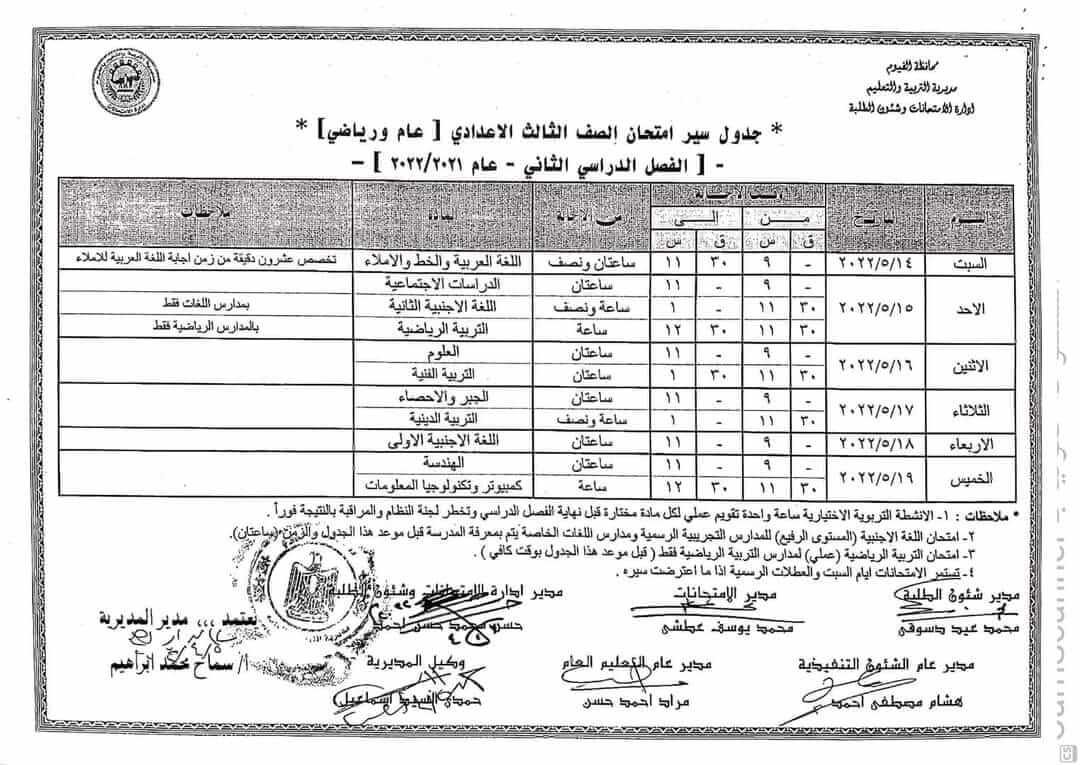 محافظة الفيوم
مديرية التربية والتعليم
ادارة الامتحانات وشئون الطلبة
* جدول سير امتحان الصف الثالث الاعدادي [ عام ورياضي] *
- [ الفصل الدراسي الثاني - عام ٢٠٢٢/٢٠٢١ ] -
اليوم التاريخ زمن الاجابة المادة ملاحظات
من الى
ق س ق س
السبت ٢٠٢٢/٥/١٤ - ٩ ٣٠ ١١ ساعتان ونصف اللغة العربية والخط والاملاء تخصص عشرون دقيقة من زمن اجابة اللغة العربية للاملاء
الاحد ٢٠٢٢/٥/١٥ - ٩ - ١١ ساعتان الدراسات الاجتماعية
٣٠ ١١ - ١ ساعة ونصف اللغة الاجنبية الثانية بمدارس اللغات فقط
٣٠ ١١ ٣٠ ١٢ ساعة التربية الرياضية بالمدارس الرياضية فقط
الاثنين ٢٠٢٢/٥/١٦ - ٩ - ١١ ساعتان العلوم
٣٠ ١١ ٣٠ ١ ساعتان التربية الفنية
الثلاثاء ٢٠٢٢/٥/١٧ - ٩ - ١١ ساعتان الجبر والاحصاء
٣٠ ١١ - ١ ساعة ونصف التربية الدينية
الاربعاء ٢٠٢٢/٥/١٨ - ٩ - ١١ ساعتان اللغة الاجنبية الاولى
الخميس ٢٠٢٢/٥/١٩ - ٩ - ١١ ساعتان الهندسة
٣٠ ١١ ٣٠ ١٢ ساعة كمبيوتر وتكنولوجيا المعلومات
* ملاحظات : ١- الانشطة التربوية الاختيارية ساعة واحدة تقويم عملي لكل مادة مختارة قبل نهاية الفصل الدراسي وتخطر لجنة النظام والمراقبة بالنتيجة فوراً .
٢- امتحان اللغة الاجنبية (المستوى الرفيع) للمدارس التجريبية الرسمية ومدارس اللغات الخاصة يتم بمعرفة المدرسة قبل موعد هذا الجدول والزمن (ساعتان).
٣- امتحان التربية الرياضية (عملي) لمدارس التربية الرياضية فقط ( قبل موعد هذا الجدول بوقت كافي ) .
٤- تستمر الامتحانات ايام السبت والعطلات الرسمية اذا ما اعترضت سيره .
مدير شئون الطلبة مدير الامتحانات مدير ادارة الامتحانات وشئون الطلبة
محمد عيد دسوقي محمد يوسف عطشى حسن محمد حسن احمد
يعتمد ,,, مدير المديرية
أ/ سماح محمد ابراهيم
مدير عام الشئون التنفيذية مدير عام التعليم العام وكيل المديرية
هشام مصطفى احمد مراد احمد حسن حمدي السيد اسماعيل
CS CamScanner